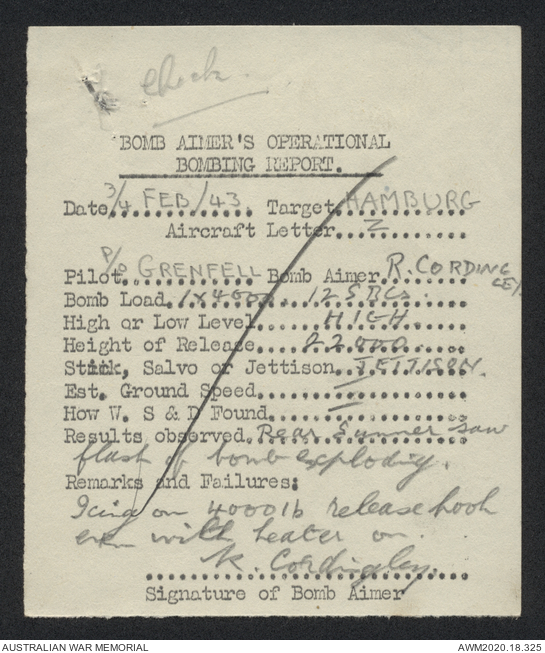 check.
BOMB AIMER'S OPERATIONAL
BOMBING REPORT.
Date 3/4 FEB/43. Target HAMBURG
Aircraft Letter Z
Pilot P/O GRENFELL Bomb Aimer R. CORDINGLEY
Bomb Load 1x4000. 12 SBCs.
High or Low Level HIGH.
Height of Release 22000.
Stick, Salvo or Jettison. JETTISON.
Est. Ground Speed —
How W. S & D Found. —
Results observed. Rear Gunner saw
flash of bomb exploding.
Remarks and Failures:
Icing on 4000lb release hook
even with heater on.
R. Cordingley.
Signature of Bomb Aimer
AUSTRALIAN WAR MEMORIAL
AWM2020.18.325